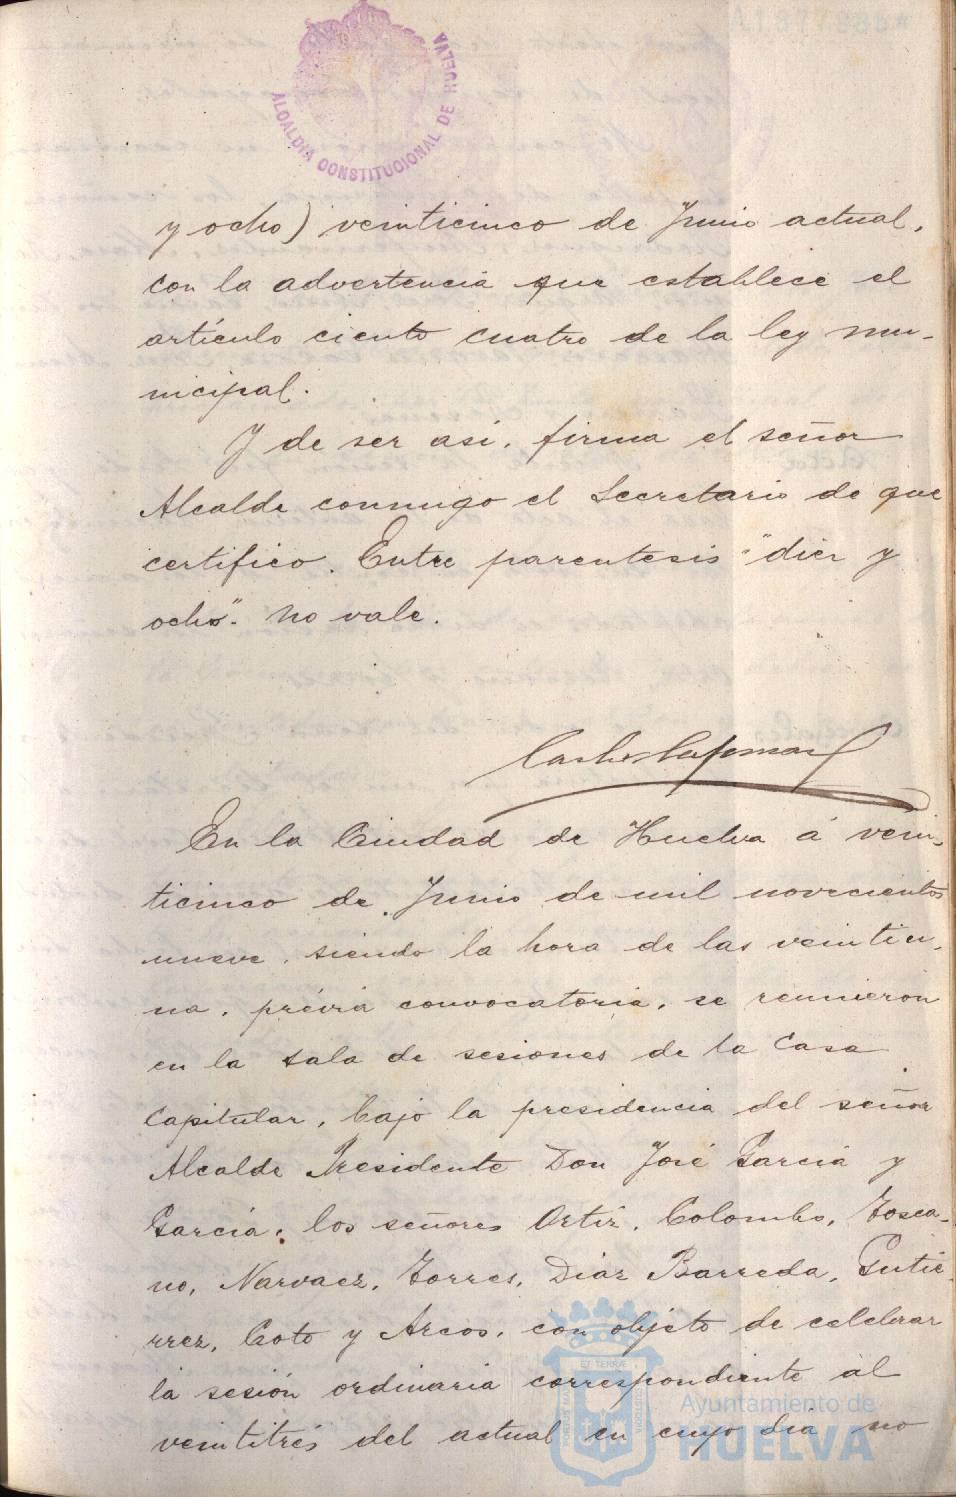 ALCALDIA CONSTITUCIONAL DE HUELVA
y ocho) veinticinco de Junio actual,
con la advertencia que establece el
artículo ciento cuatro de la ley mu-
nicipal.
Y de ser así, firma el señor
Alcalde conmigo el Secretario de que
certifico. Entre parentesis "diez y
ocho". no vale.
En la Ciudad de Huelva á vein-
ticinco de Junio de mil novecientos
nueve, siendo la hora de las veintiu-
na, prévia convocatoria, se reunieron
en la sala de sesiones de la Casa
Capitular, bajo la presidencia del señor
Alcalde Presidente Don José Garcia y
Garcia, los señores Ortiz, Colombo, Tosca-
no, Narvaez, Torres, Diaz Barreda, Gutie-
rrez, Coto y Arcos, con objeto de celebrar
la sesión ordinaria correspondiente al
veintitrés del actual en cuyo dia no
Ayuntamiento de
HUELVA